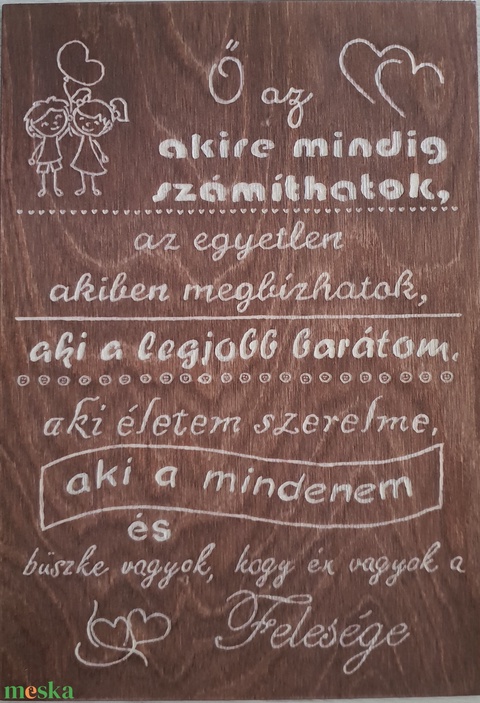 Ő az
akire mindig
számíthatok,
az egyetlen
akiben megbízhatok,
aki a legjobb barátom.
aki életem szerelme,
aki a mindenem
és
büszke vagyok, hogy én vagyok a
Felesége
meska